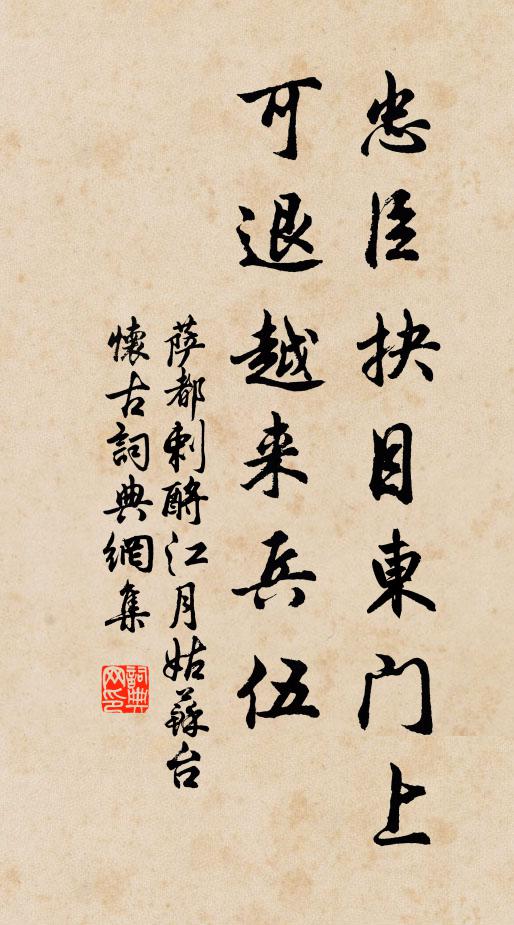 忠臣抉目東門上
可退越来兵伍
薩都剌酹江月姑蘇台
懷古詞典網集
詞典网印